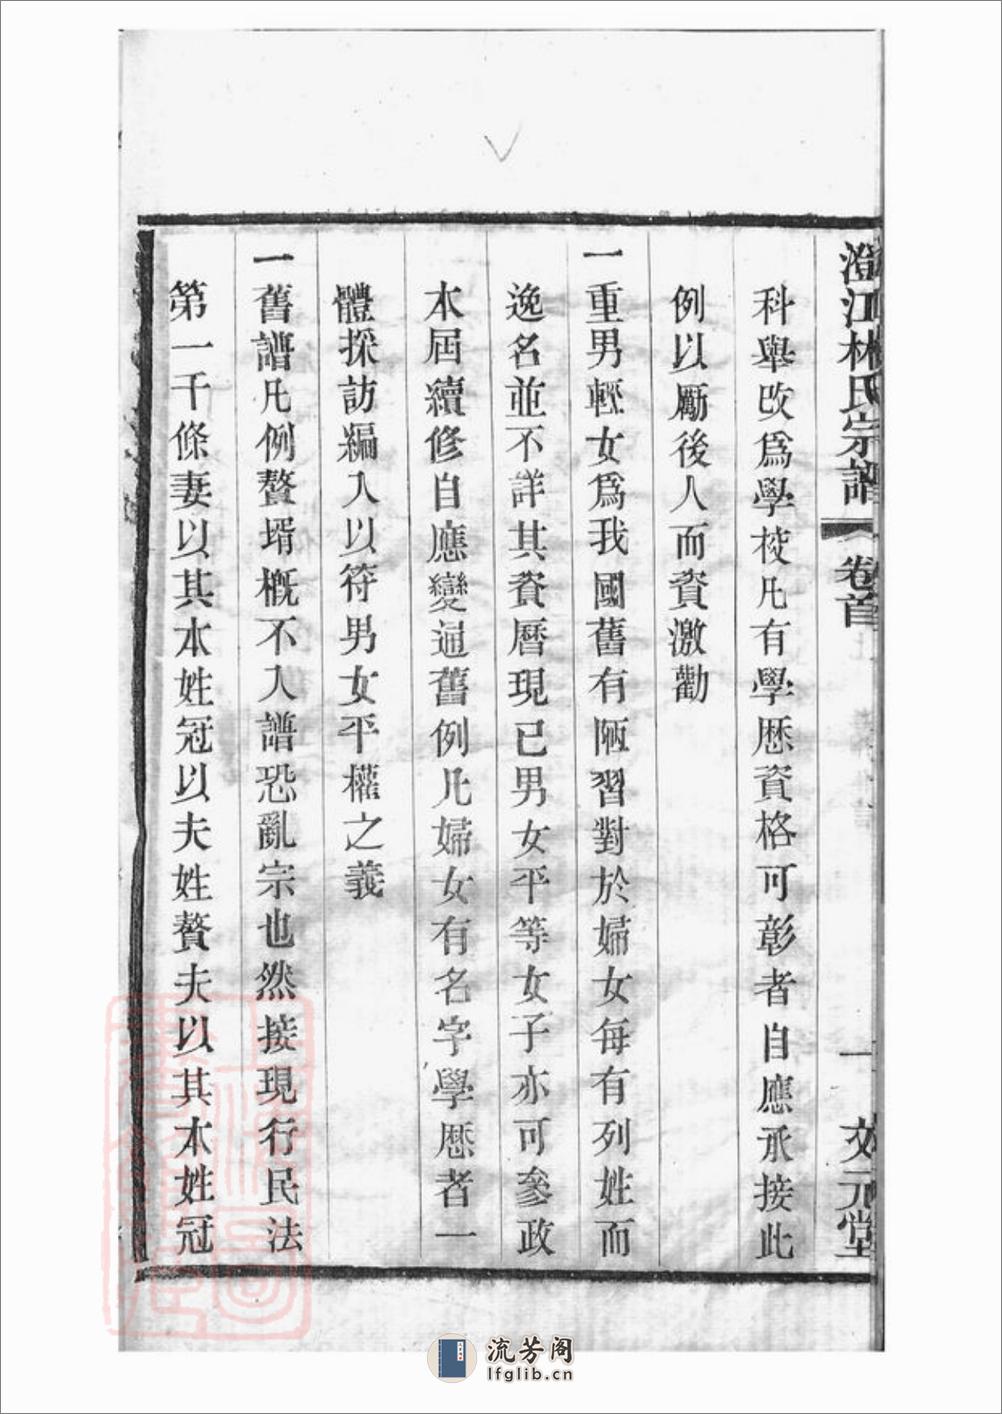 澄江林氏宗譜 卷首 一 文元堂
科舉改為學校凡有學歷資格可彰者自應承接此
例以勵後人而資激勸
一重男輕女為我國舊有陋習對於婦女每有列姓而
逸名並不詳其資曆現已男女平等女子亦可參政
本屆續修自應變通舊例凡婦女有名字學歷者一
體採訪編入以符男女平權之義
一舊譜凡例贅壻概不入譜恐亂宗也然接現行民法
第一千條妻以其本姓冠以夫姓贅夫以其本姓冠
流芳阁
lfglib.cn